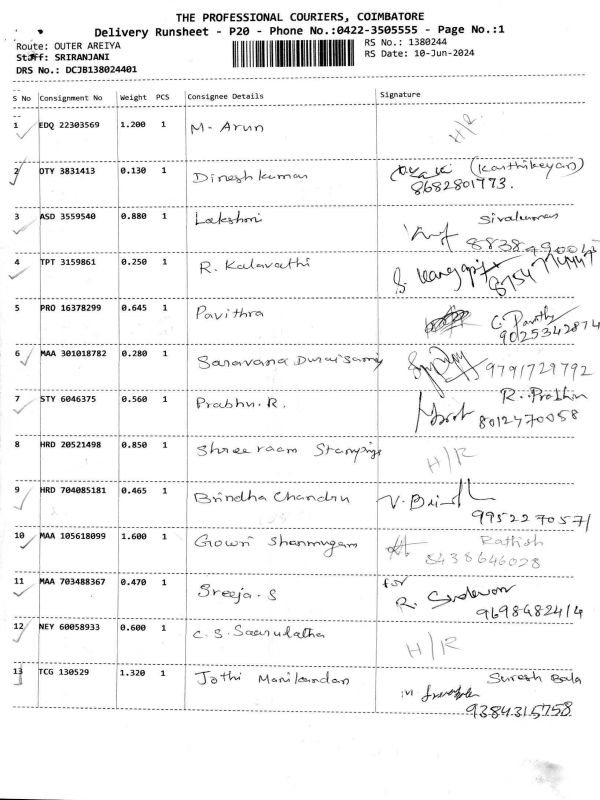 THE PROFESSIONAL COURIERS, COIMBATORE
Delivery Runsheet - P20 - Phone No.:0422-3505555 - Page No.:1
Route: OUTER AREIYA RS No.: 1380244
Staff: SRIRANJANI RS Date: 10-Jun-2024
DRS No.: DCJB138024401
S No Consignment No Weight PCS Consignee Details Signature
1 EDQ 22303569 1.200 1 M. Arun H/R
2 OTY 3831413 0.130 1 Dineshkumar (Karthikeyan)
8682801773.
3 ASD 3559540 0.880 1 Lakshmi Sivakumar
4 TPT 3159861 0.250 1 R. Kalavathi
5 PRO 16378299 0.645 1 Pavithra C. Pavithra
9025342874
6 MAA 301018782 0.280 1 Saravana Duraisamy 9791729792
7 STY 6046375 0.560 1 Prabhu.R.
8012470058
8 HRD 20521498 0.850 1 Shreeraam Stampings H/R
9 HRD 704085181 0.465 1 Brindha Chandru
9952270571
10 MAA 105618099 1.600 1 Gowri Shanmugam Rathish
8438646028
11 MAA 703488367 0.470 1 Sreeja.S for
R.
9698682414
12 NEY 60058933 0.600 1 C.S. Saarulatha H/R
13 TCG 130529 1.320 1 Jothi Manikandan Suresh Bala
9384315758